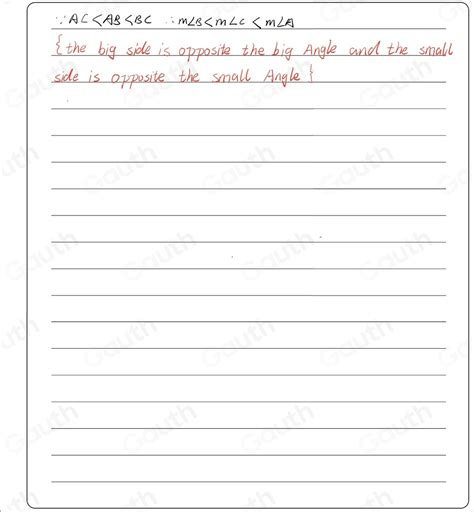 ∵ AC<AB<BC ∴ m∠B<m∠C<m∠A
{the big side is opposite the big Angle and the small
side is opposite the small Angle}